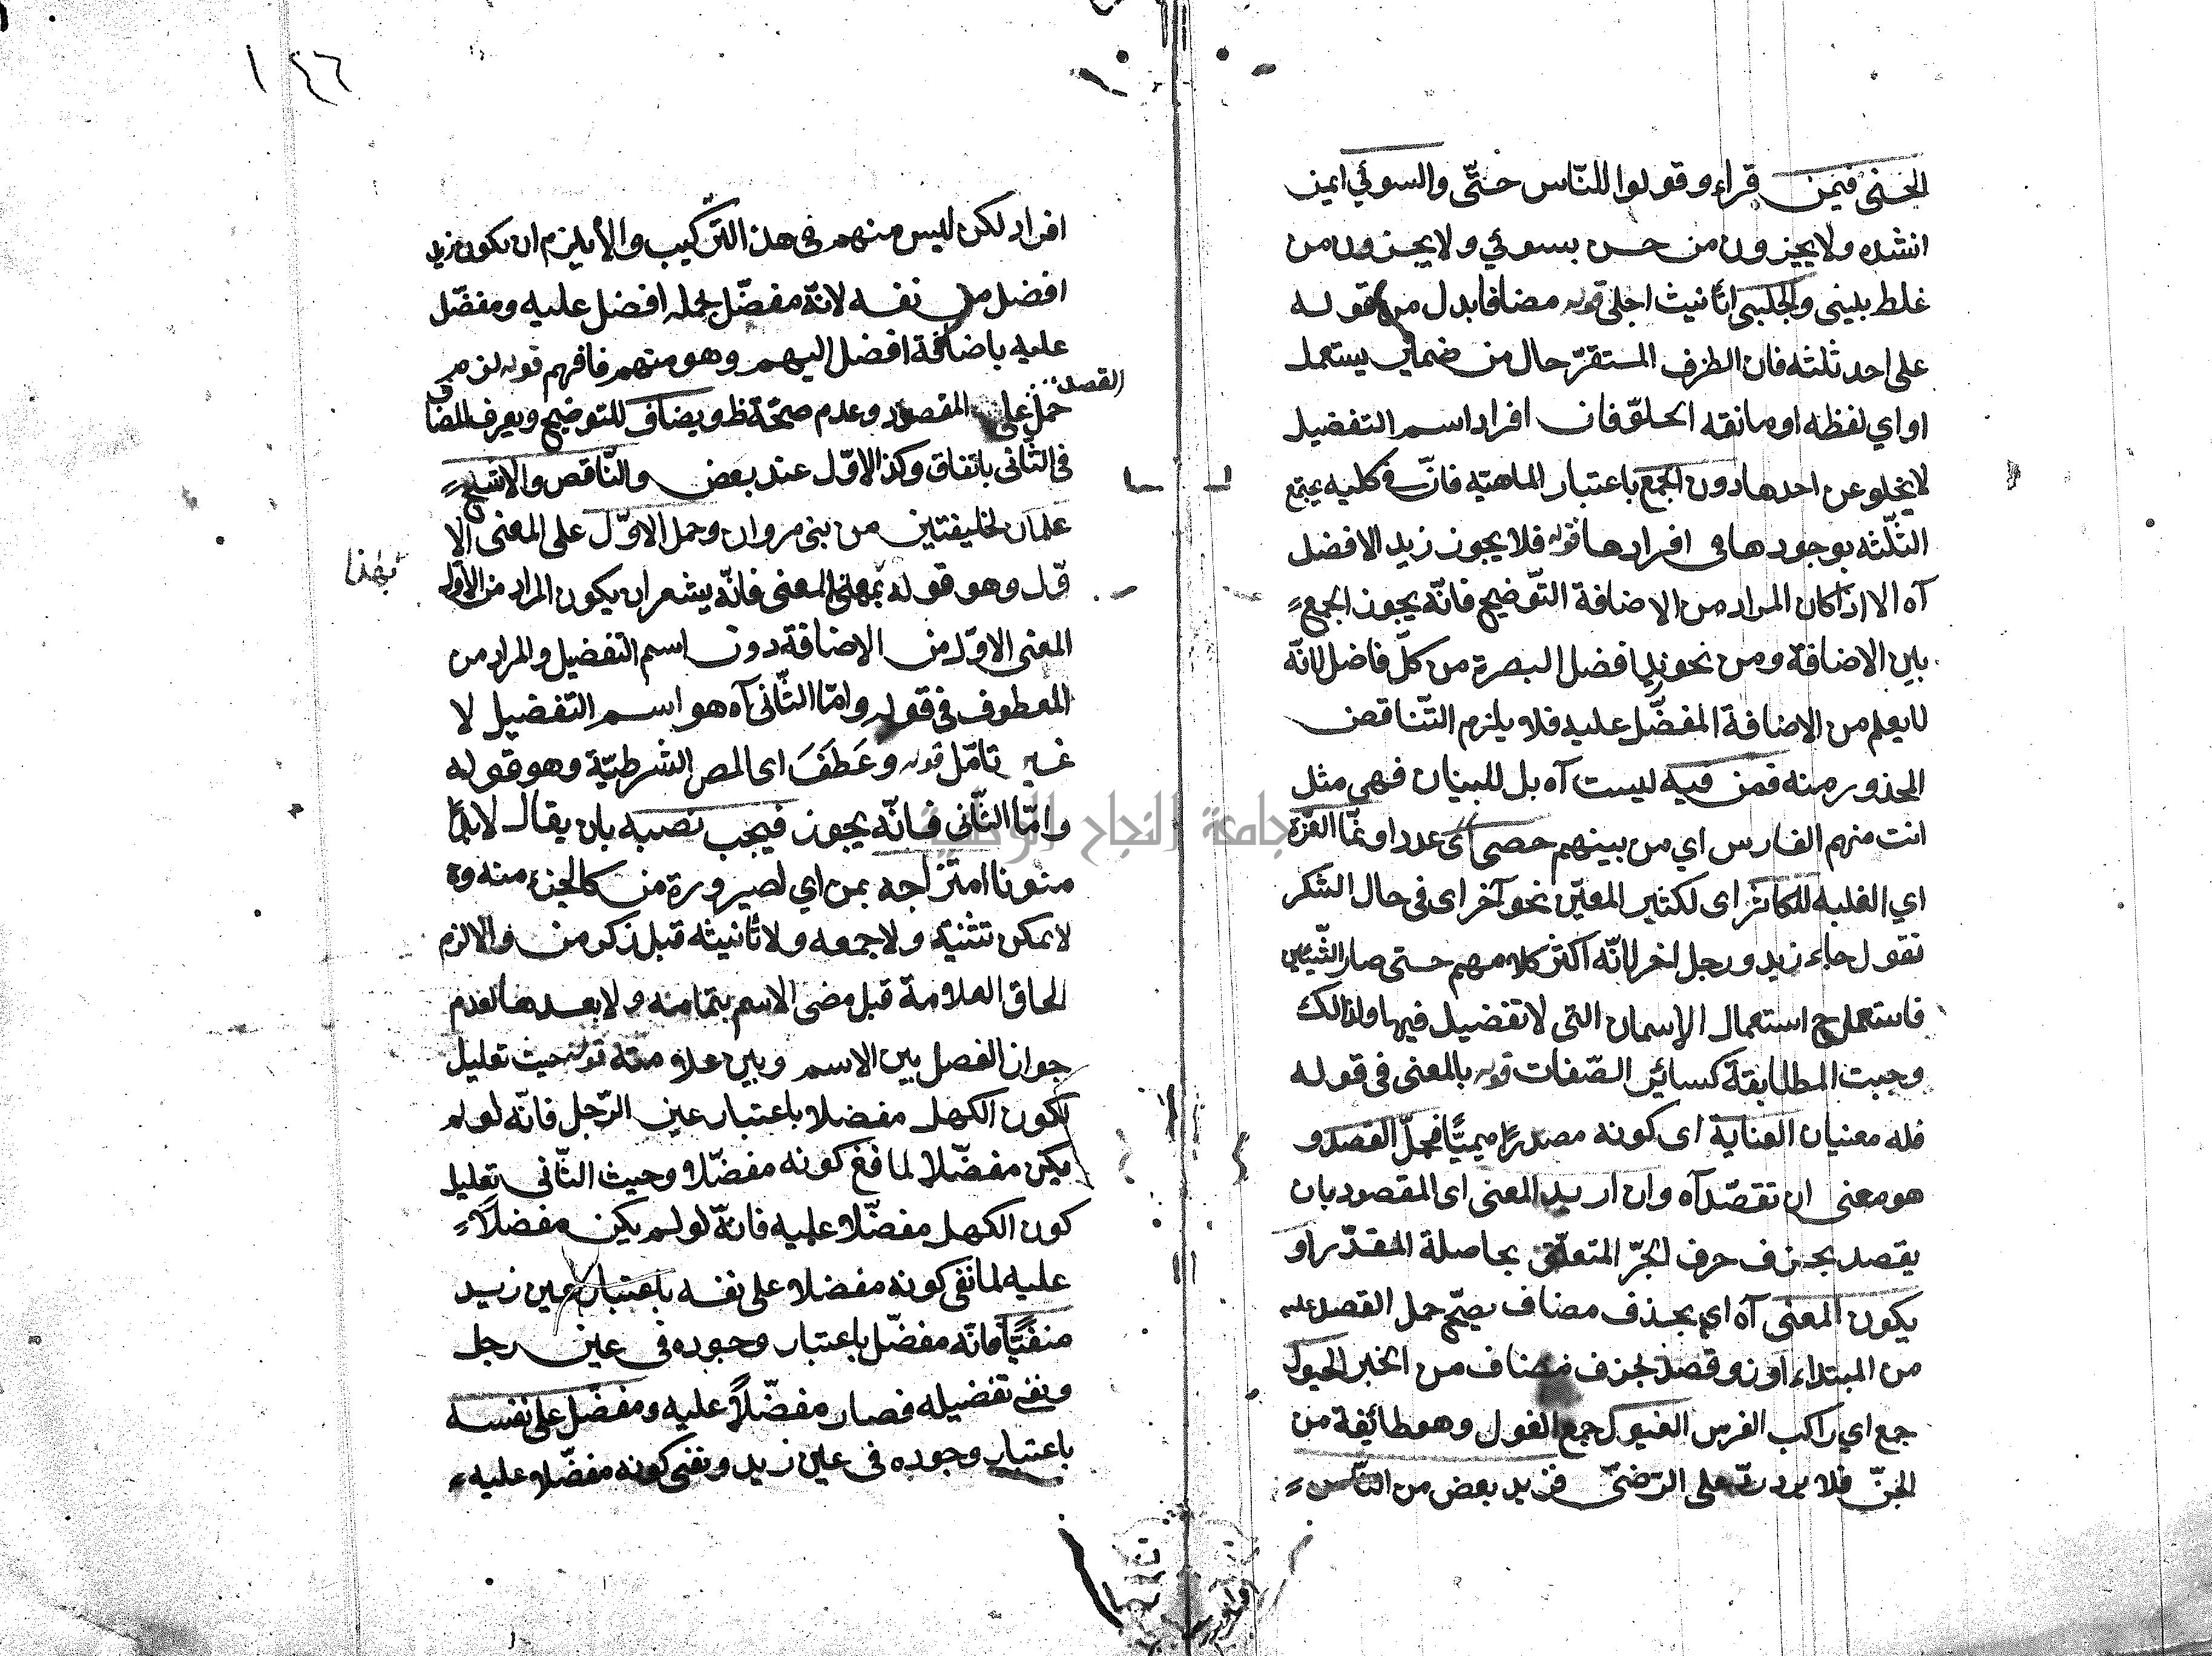 الحسنى فيمن قراء وقولوا للنّاس حسنى والسوئي ايمن
انشده ولا يجيزون من حسن بسوئي ولا يجزون من
غلط بليني والجلبى تانيث اجلى قوله مضافا بدل من قوله
على احد ثلثه فان الظرف المستقرّ حال من ضمير يستعمل
او اي لفظه او مانعه الخلوّ فان افراد اسم التفضيل
لا يخلو عن احدها دون الجمع باعتبار الماهيّه فانّ كليه يجتمع
الثّلثه بوجودها في افرادها قوله فلا يجوز زيد الافضل
آه الا اذا كان المراد من الاضافة التّوضيح فانّه يجوز الجمع
بين الاضافة ومن نحو زيد افضل البصرة من كلّ فاضل لانّه
لا يعلم من الاضافة المفضّل عليه فلا يلزم التّناقض
المحذور منه فمن فيه ليست آه بل للبيان فهى مثل
انت منهم الفارس اي من بينهم حصى اى عددا وانّما العزّة
اي الغلبه للكاثر اى لكثير المعيّن نحو آخر اى في حال الشكر
نقول جاء زيد ورجل اخر لانّه اكثر كلامهم حتى صار الشّيئين
فاستعمل ح استعمال الاسمان التى لا تفضيل فيها ولذالك
وجبت المطابقة كسائر الصّفات قوله بالمعنى في قوله
فله معنيان العناية اى كونه مصدرًا ميميّا فمحلّ القصد و
هو معنى ان تقصّد آه وان اريد المعنى اى المقصود بان
يقصد بحذف حرف الجرّ المتعلّق بحاصلة المقدّر او
يكون المعنى آه اي بحذف مضاف يصحّ حمل القصد عليه
من المبتداء او ذو قصد بحذف مضاف من الخبر الخيول
جمع اي راكب الفرس الغيول جمع الغول وهو طائفة من
الجنّ فلا يرد على الرّضىّ فزيد بعض من النّاس
١٤٦
افراد لكن ليس منهم في هذا التّركيب والّا يلزم ان يكون زيد
افضل من نفسه لانّه مفضّل بحمله افضل عليه ومفضّل
عليه باضافة افضل اليهم وهو منهم فافهم قوله لزم
القصد
حمل على المقصود وعدم صحّة ظ ويضاف للتوضيح ويعرف المضاف
في الثّانى باتّفاق وكذا الاوّل عند بعض والنّاقص والاشجّ
علمان لخليفتين من بنى مروان وحمل الاوّل على المعنى الا
وّل وهو قوله بمعنى المعنى فانّه يشعر ان يكون المراد من الاوّل
بهذا
المعنى الاوّل من الاضافة دون اسم التفضيل والمراد من
المعطوف في قوله وامّا الثّانى آه هو اسم التّفضيل لا
غير تامّل قوله وعَطَفَ اى المص الشرطيّة وهو قوله
وامّا الثّانى فانّه يجوز فيجب نصبه بان يقال لا بدًا
منونا امتزاجه بمن اي لصيرورة من كالجزء منه و ح
لا يمكن تثنيته ولا جمعه ولا تأنيثه قبل ذكر من والا لزم
الحاق العلامة قبل مضى الاسم بتمامه ولا بعدها لعدم
جواز الفصل بين الاسم وبين علامته قوله حيث تعليل
لكون الكهل مفضلا باعتبار عين الرّجل فانّه لو لم
يكن مفضّلا لما فغ كونه مفضّلا وحيث الثّانى تعليل
كون الكهل مفضّلا عليه فانّه لو لم يكن مفضلًا
عليه لما نفى كونه مفضلا على نفسه باعتبار عين زيد
منفيّاً فانّه مفضّل باعتبار وجوده في عين رجل
ونفى تفضيله فصار مفضّلاً عليه ومفضّل على نفسه
باعتبار وجوده في عين زيد ونفى كونه مفضّلا عليه
جامعة النجاح الوطنية